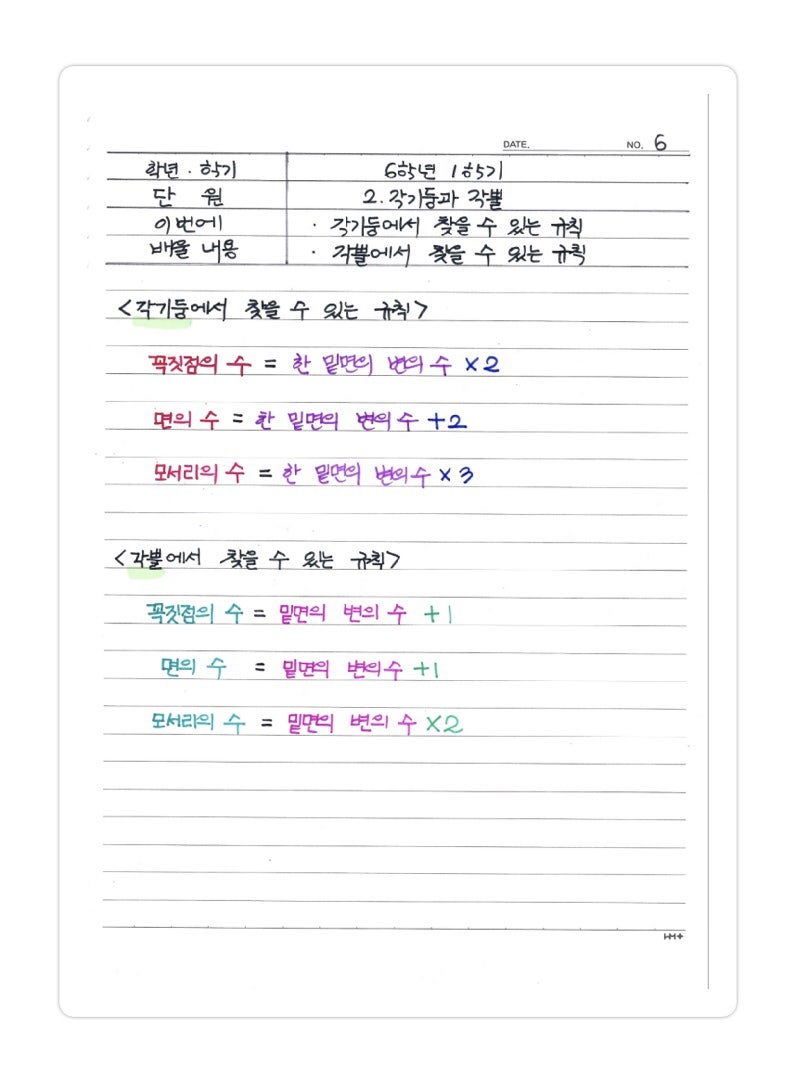 DATE. NO. 6
학년·학기 6학년 1학기
단 원 2. 각기둥과 각뿔
이번에 · 각기둥에서 찾을 수 있는 규칙
배울 내용 · 각뿔에서 찾을 수 있는 규칙
<각기둥에서 찾을 수 있는 규칙>
꼭짓점의 수 = 한 밑면의 변의 수 ×2
면의 수 = 한 밑면의 변의 수 +2
모서리의 수 = 한 밑면의 변의 수 × 3
<각뿔에서 찾을 수 있는 규칙>
꼭짓점의 수 = 밑면의 변의 수 +1
면의 수 = 밑면의 변의 수 +1
모서리의 수 = 밑면의 변의 수 ×2